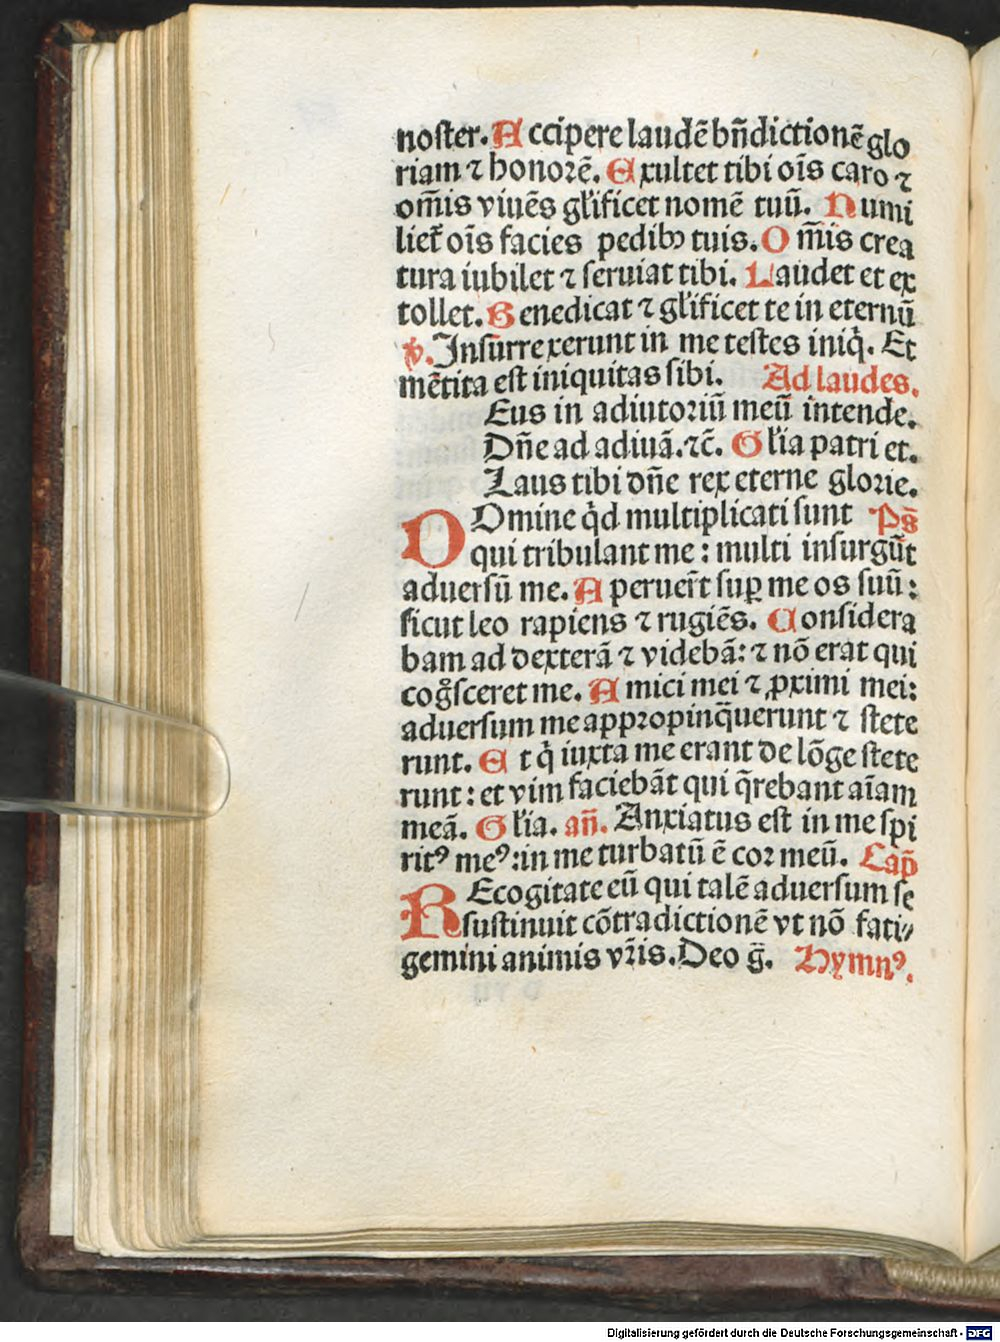 noster. Accipere laudē bn̄dictionē glo
riam ⁊ honorē. Exultet tibi oīs caro ⁊
om̄is viuēs gl̄ificet nomē tuū. Numi
liet̄ oīs facies pedibꝫ tuis. Om̄is crea
tura iubilet ⁊ seruiat tibi. Laudet et ex
tollet. Benedicat ⁊ gl̄ificet te in eternū
℣. Insurrexerunt in me testes iniq̇. Et
mētita est iniquitas sibi. Ad laudes.
Eus in adiutoriū meū intende.
Dn̄e ad adiuā. ⁊c̄. Gl̄ia patri et.
Laus tibi dn̄e rex eterne glorie.
DOmine q̇d multiplicati sunt Ps̄
qui tribulant me : multi insurgūt
aduersū me. Aperuer̄t suꝑ me os suū :
sicut leo rapiens ⁊ rugiēs. Considera
bam ad dexterā ⁊ videbā: ⁊ nō erat qui
cog̊sceret me. Amici mei ⁊ ꝓximi mei:
aduersum me appropinq̄uerunt ⁊ stete
runt. Et q̇ iuxta me erant de lōge stete
runt : et vim faciebāt qui q̄rebant aīam
meā. Gl̄ia. an̄. Anxiatus est in me spi
ritꝰ meꝰ: in me turbatū ē cor meū. Cap̄
REcogitate eū qui talē aduersum se
sustinuit cōtradictionē vt nō fati⸗
gemini animis vr̄is. Deo ḡ. Hymnꝰ.
Digitalisierung gefördert durch die Deutsche Forschungsgemeinschaft - DFG